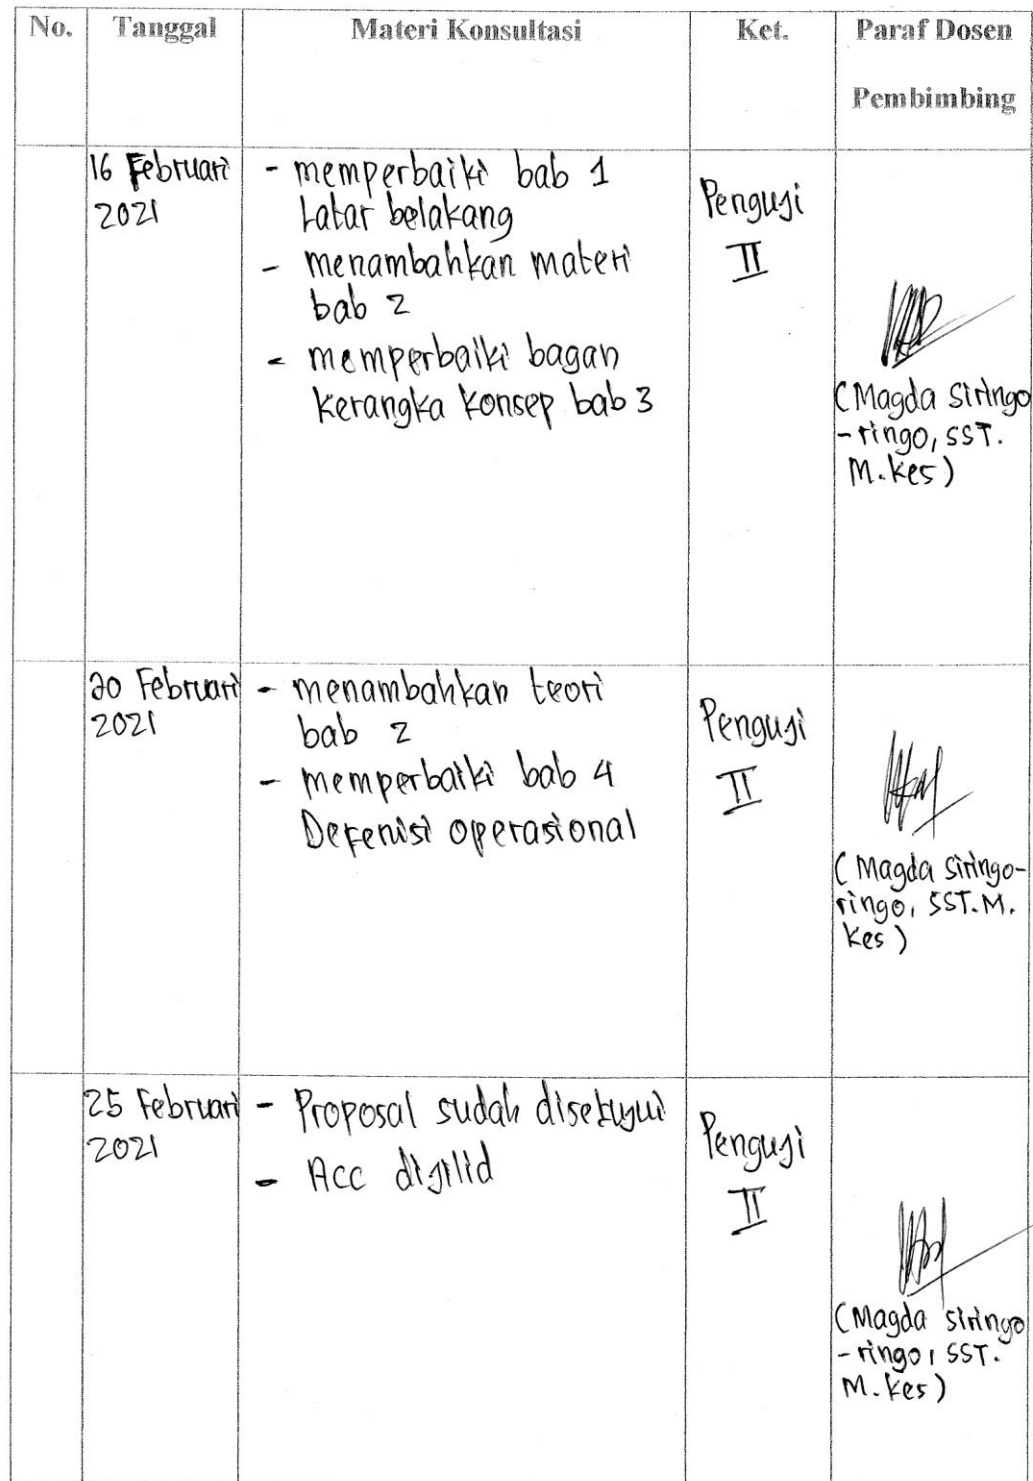 No. Tanggal Materi Konsultasi Ket. Paraf Dosen
Pembimbing
16 Februari
2021
- memperbaiki bab 1
Latar belakang
- menambahkan materi
bab 2
- memperbaiki bagan
kerangka konsep bab 3
Penguji
II
(Magda Siringo
-ringo, SST.
M.Kes)
20 Februari
2021
- menambahkan teori
bab 2
- memperbaiki bab 4
Defenisi operasional
Penguji
II
(Magda Siringo-
ringo, SST.M.
Kes)
25 Februari
2021
- Proposal sudah disetujui
- Acc dijilid
Penguji
II
(Magda Siringo
-ringo, SST.
M.Kes)